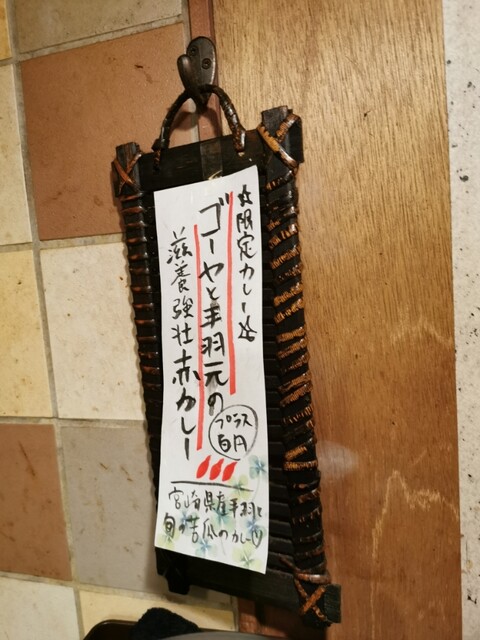 ☆限定カレー☆
ゴーヤと手羽元の
滋養強壮赤カレー
プラス
百円
宮崎県産手羽と
旬の苦瓜のカレー